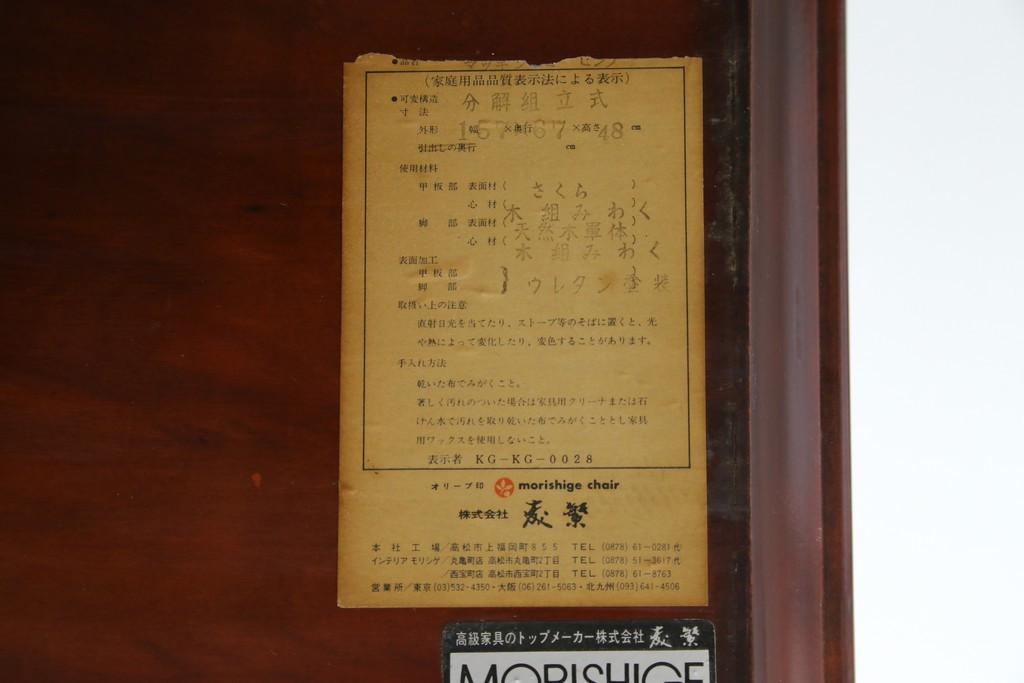 ●品名
(家庭用品品質表示法による表示)
●可変構造 分解組立式
寸法
外形 幅 ×奥行 ×高さ cm
157×67 48
引出しの奥行 cm
使用材料
甲板部 表面材( さくら )
心材( 木組みわく
脚部 表面材( 天然木単体 )
心材( 木組みわく )
表面加工
甲板部
脚部 } ウレタン塗装
取扱い上の注意
直射日光を当てたり、ストーブ等のそばに置くと、光
や熱によって変化したり、変色することがあります。
手入れ方法
乾いた布でみがくこと。
著しく汚れのついた場合は家具用クリーナまたは石
けん水で汚れを取り乾いた布でみがくこととし家具
用ワックスを使用しないこと。
表示者 KG-KG-0028
オリーブ印 morishige chair
株式会社 繁
本社工場/高松市上福岡町855 TEL (0878) 61-0281代
インテリア モリシゲ/丸亀町店 高松市丸亀町2丁目 TEL (0878) 51-3617代
/西宝町店 高松市西宝町2丁目 TEL (0878) 61-8763
営業所/東京(03)532-4350・大阪(06)261-5063・北九州(093)641-4506
高級家具のトップメーカー株式会社 繁
MORISHIGE